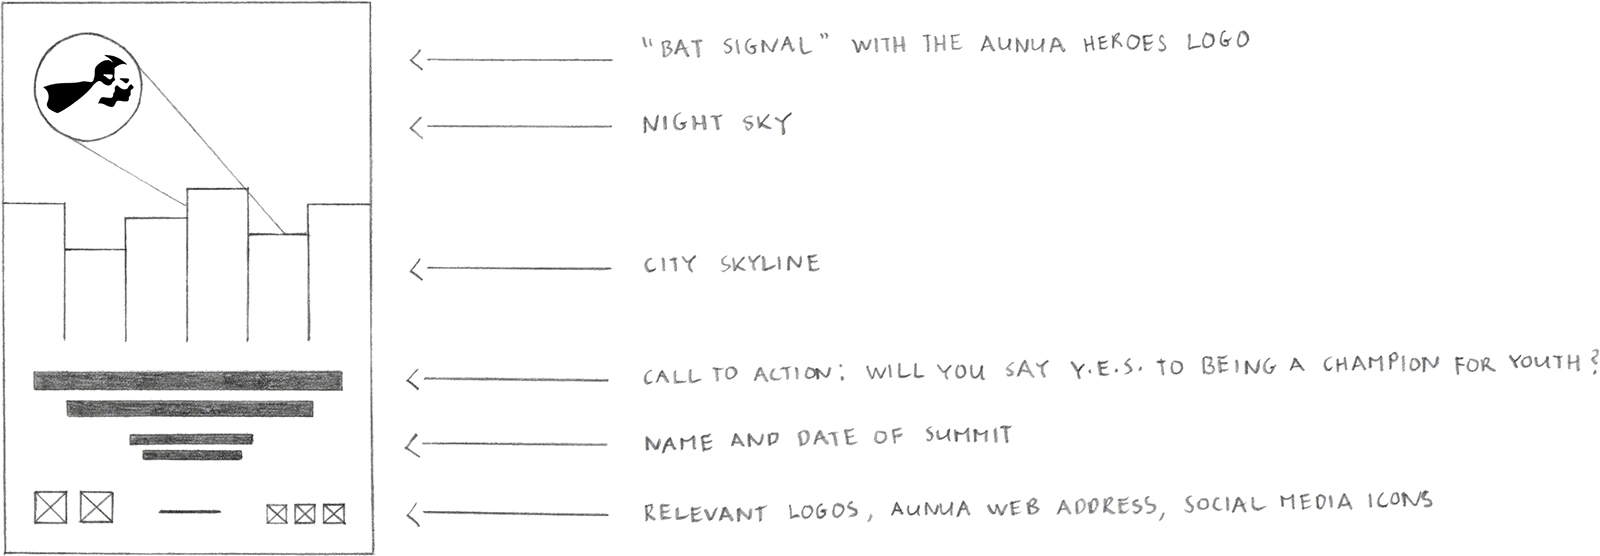 "BAT SIGNAL" WITH THE AUNUA HEROES LOGO
NIGHT SKY
CITY SKYLINE
CALL TO ACTION: WILL YOU SAY Y.E.S. TO BEING A CHAMPION FOR YOUTH?
NAME AND DATE OF SUMMIT
RELEVANT LOGOS, AUNUA WEB ADDRESS, SOCIAL MEDIA ICONS